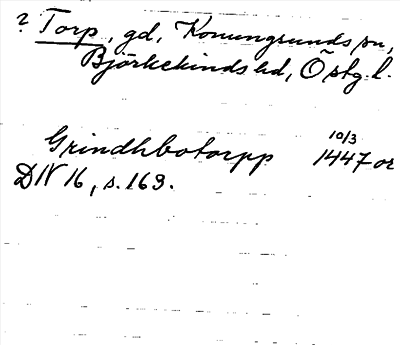 ? Torp, gd, Konungsunds sn,
Björkekinds hd, Östg. l.
Grindhbotorpp 10/3 1447 or
DN 16, s. 169.